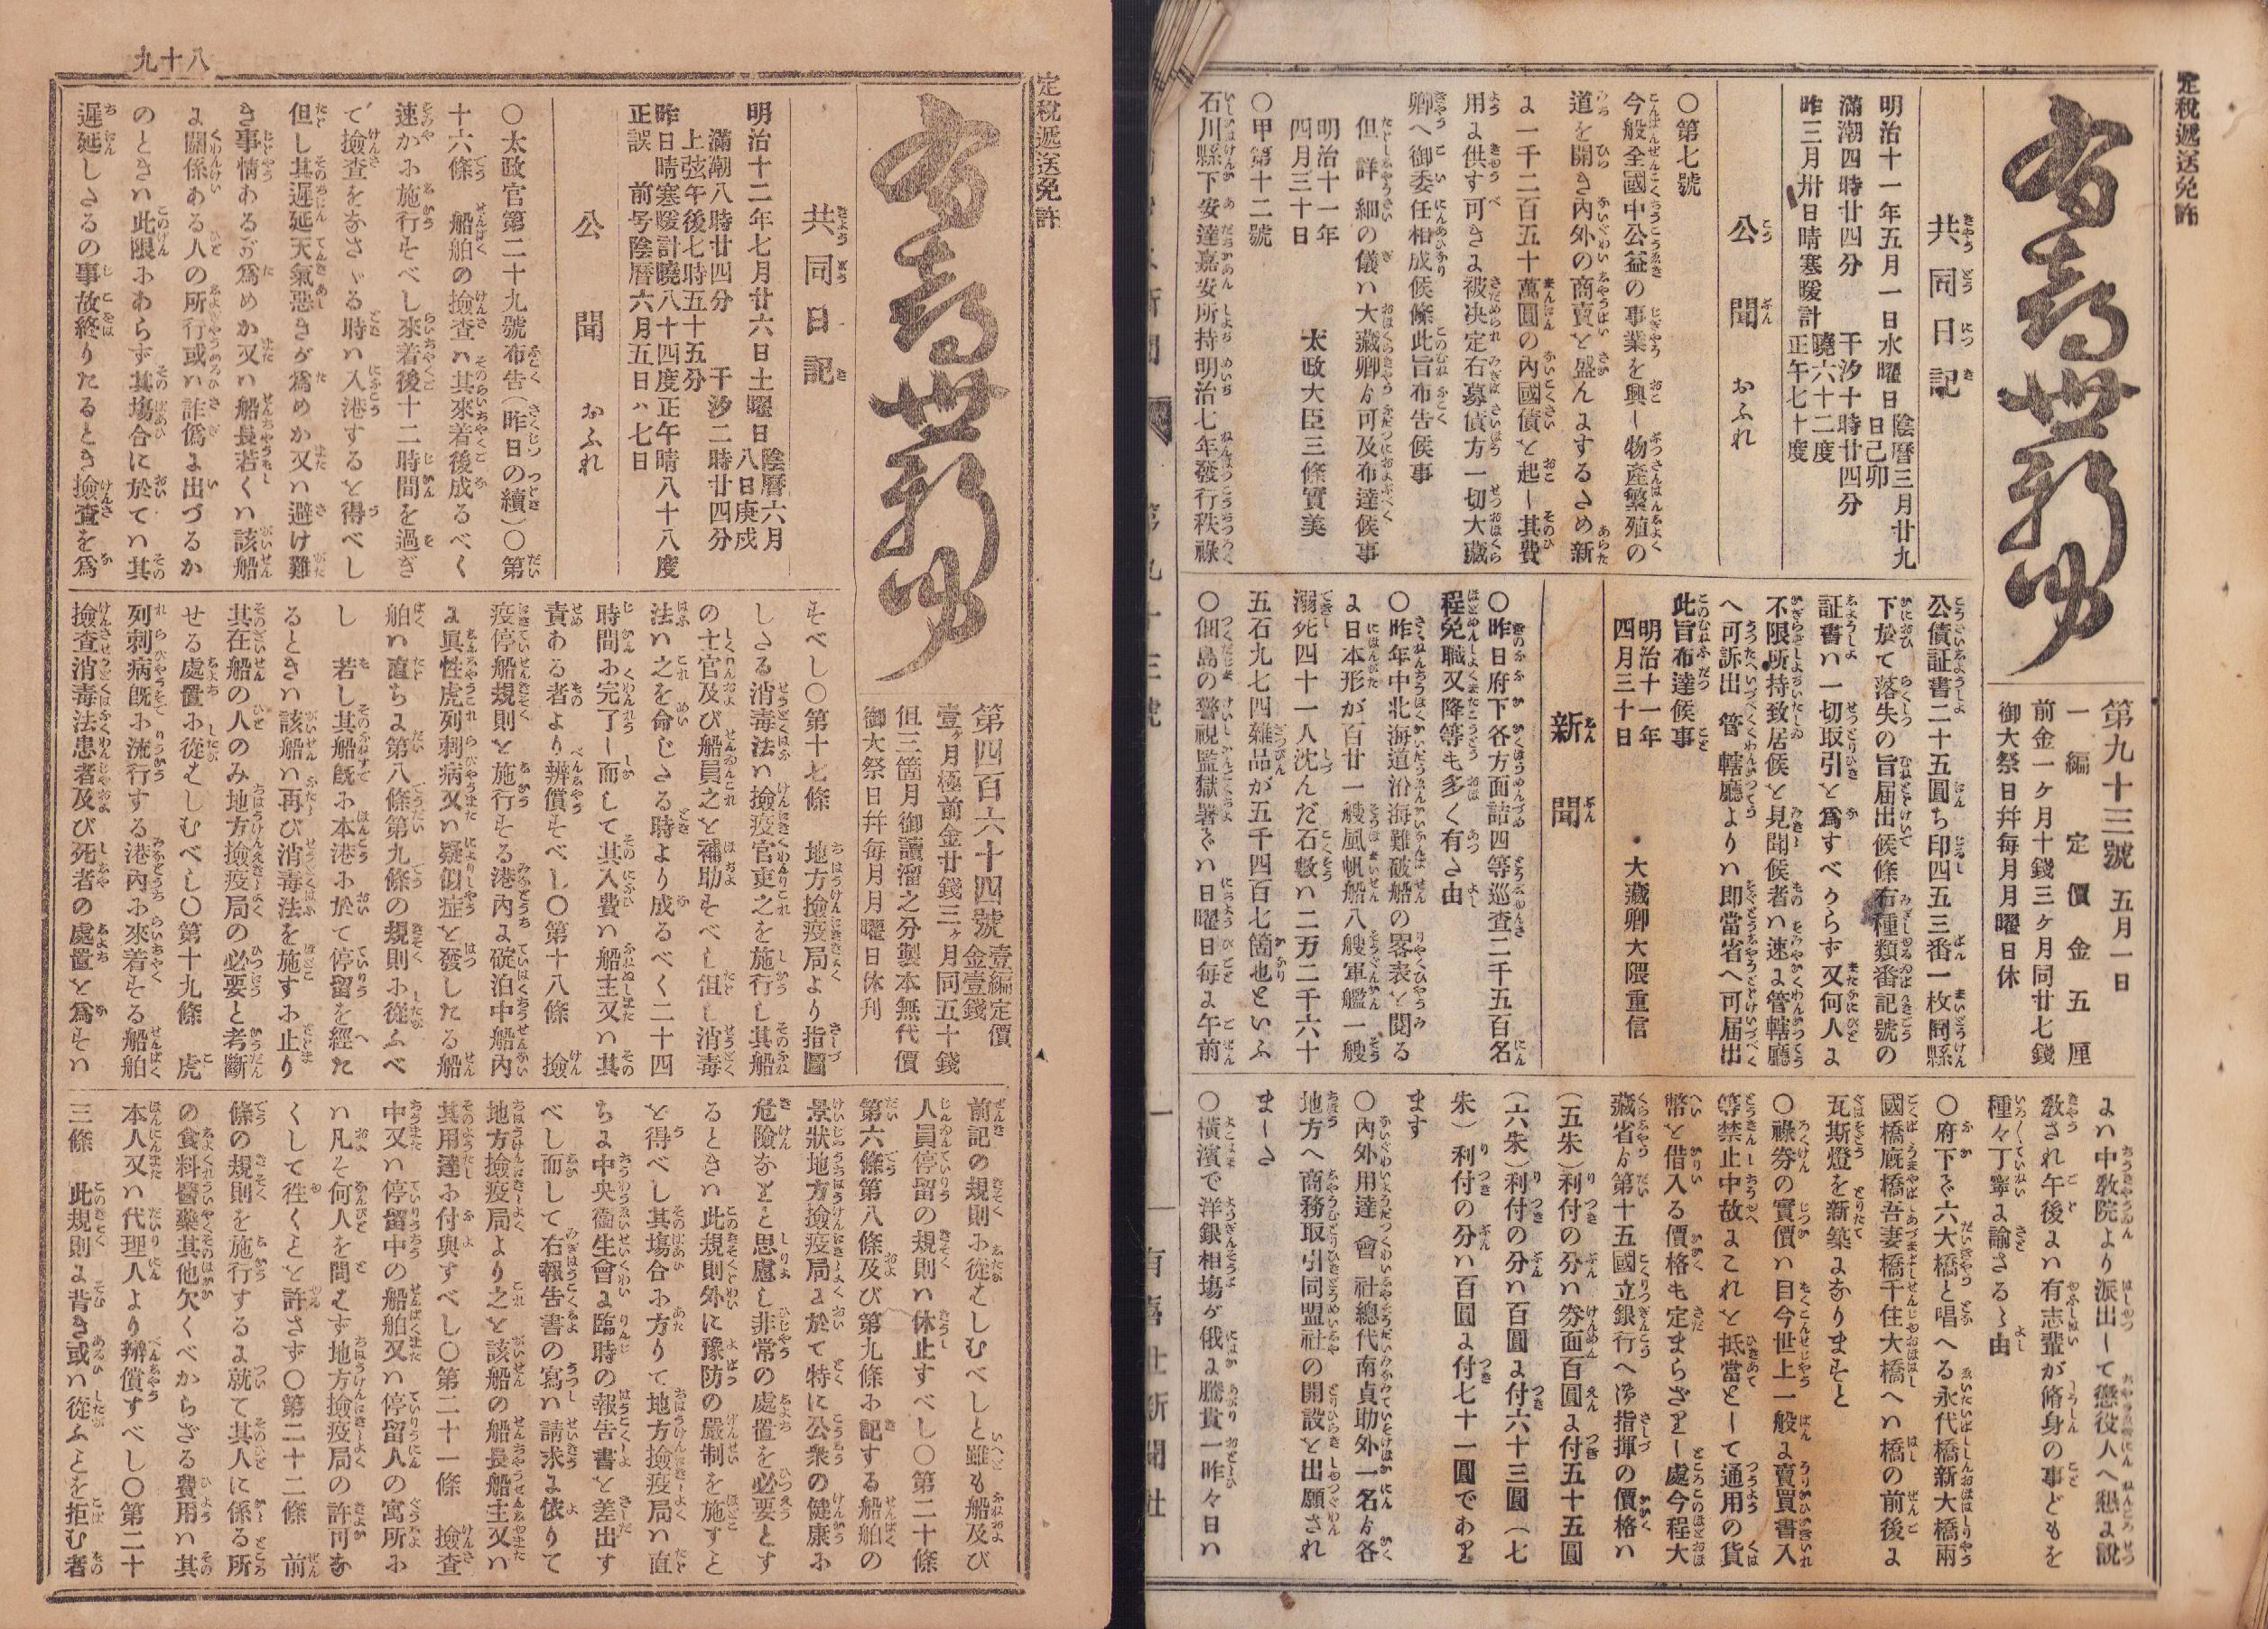 定税遞送免許
有喜世新聞
第九十三號 五月一日
一編定價金五厘
前金一ヶ月十錢三ヶ月同廿七錢
御大祭日幷毎月月曜日休
共同日記
明治十一年五月一日水曜日陰曆三月廿九日己卯
滿潮四時廿四分 干汐十時廿四分
昨三月卅日晴寒暖計曉六十二度正午七十度
公聞 おふれ
○第七號
今般全國中公益の事業を興し物產繁殖の
道を開き內外の商賣を盛んにするため新
に一千二百五十萬圓の內國債を起し其費
用に供す可きに被决定右募債方一切大藏
卿へ御委任相成候條此旨布告候事
但詳細の儀ハ大藏卿ゟ可及布達候事
明治十一年四月三十日 太政大臣三條實美
○甲第十二號
石川縣下安達嘉安所持明治七年發行秩祿
公債証書二十五圓ち印四五三番一枚同縣
下於て落失の旨届出候條右種類番記號の
証書ハ一切取引を爲すべからす又何人に
不限所持致居候を見聞候者ハ速に管轄廳
へ可訴出管轄廳よりハ即當省へ可届出
此旨布達候事
明治十一年四月三十日 大藏卿大隈重信
新聞
○昨日府下各方面詰四等巡査二千五百名
程免職又降等も多く有た由
○昨年中北海道沿海難破船の畧表を閱る
に日本形が百廿一艘風帆船八艘軍艦一艘
溺死四十一人沈んだ石數ハ二万二千六十
五石九七四雜品が五千四百七箇也といふ
○佃島の警視監獄署でハ日曜日毎に午前
にハ中敎院より派出して懲役人へ懇に說
敎され午後にハ有志輩が脩身の事どもを
種々丁寧に諭さるゝ由
○府下で六大橋と唱へる永代橋新大橋兩
國橋廐橋吾妻橋千住大橋へハ橋の前後に
瓦斯燈を新築になりますと
○祿券の實價ハ目今世上一般に賣買書入
等禁止中故にこれを抵當として通用の貨
幣を借入る價格も定まらざりし處今程大
藏省ゟ第十五國立銀行へ御指揮の價格ハ
(五朱)利付の分ハ券面百圓に付五十五圓
(六朱)利付の分ハ百圓に付六十三圓(七
朱)利付の分ハ百圓に付七十一圓であり
ます
○內外用達會社總代南貞助外一名ゟ各
地方へ商務取引同盟社の開設を出願され
ました
○橫濱で洋銀相塲が俄に騰貴一昨々日ハ
定税遞送免許
八十九
有喜世新聞
第四百六十四號 壹編定價金壹錢
壹ヶ月極前金廿錢三ヶ月同五十錢
但三箇月御讀溜之分製本無代價
御大祭日幷毎月月曜日休刊
共同日記
明治十二年七月廿六日土曜日陰曆六月八日庚戌
滿潮八時廿四分 干汐二時廿四分
上弦午後七時五十五分
昨日晴寒暖計曉八十四度正午晴八十八度
正誤 前号陰曆六月五日ハ七日
公聞 おふれ
○太政官第二十九號布告(昨日の續)○第
十六條 船舶の撿査ハ其來着後成るべく
速かに施行すべし來着後十二時間を過ぎ
て撿査をなさゞる時ハ入港するを得べし
但し其遲延天氣惡きが爲めか又ハ避け難
き事情あるが爲めか又ハ船長若くハ該船
に關係ある人の所行或ハ詐僞に出づるか
のときハ此限にあらず其塲合に於てハ其
遲延したるの事故終りたるとき撿査を爲
すべし○第十七條 地方撿疫局より指圖
したる消毒法ハ撿疫官吏之を施行し其船
の士官及び船員之を補助すべし但し消毒
法ハ之を命じたる時より成るべく二十四
時間に完了し而して其入費ハ船主又ハ其
責ある者より辨償すべし○第十八條 撿
疫停船規則を施行する港內に碇泊中船內
に眞性虎列刺病又ハ疑似症を發したる船
舶ハ直ちに第八條第九條の規則に從ふべ
し 若し其船既に本港に於て停留を經た
るときハ該船ハ再び消毒法を施すに止り
其在船の人のみ地方撿疫局の必要と考斷
せる處置に從はしむべし○第十九條 虎
列刺病既に流行する港內に來着する船舶
撿査消毒法患者及び死者の處置を爲すハ
前記の規則に從はしむべしと雖も船及び
人員停留の規則ハ休止すべし○第二十條
第六條第八條及び第九條に記する船舶の
景狀地方撿疫局に於て特に公衆の健康に
危險なりと思慮し非常の處置を必要とす
るときハ此規則外に豫防の嚴制を施すと
を得べし其塲合に方りて地方撿疫局ハ直
ちに中央衞生會に臨時の報告書を差出す
べし而して右報告書の寫ハ請求に依りて
地方撿疫局より之を該船の船長船主又ハ
其用達に付與すべし○第二十一條 撿査
中又ハ停留中の船舶又ハ停留人の寓所に
ハ凡そ何人を問はず地方撿疫局の許可な
くして徃くとを許さず○第二十二條 前
條の規則を施行するに就て其人に係る所
の食料醫藥其他欠くべからざる費用ハ其
本人又ハ代理人より辨償すべし○第二十
三條 此規則に背き或ハ從ふとを拒む者